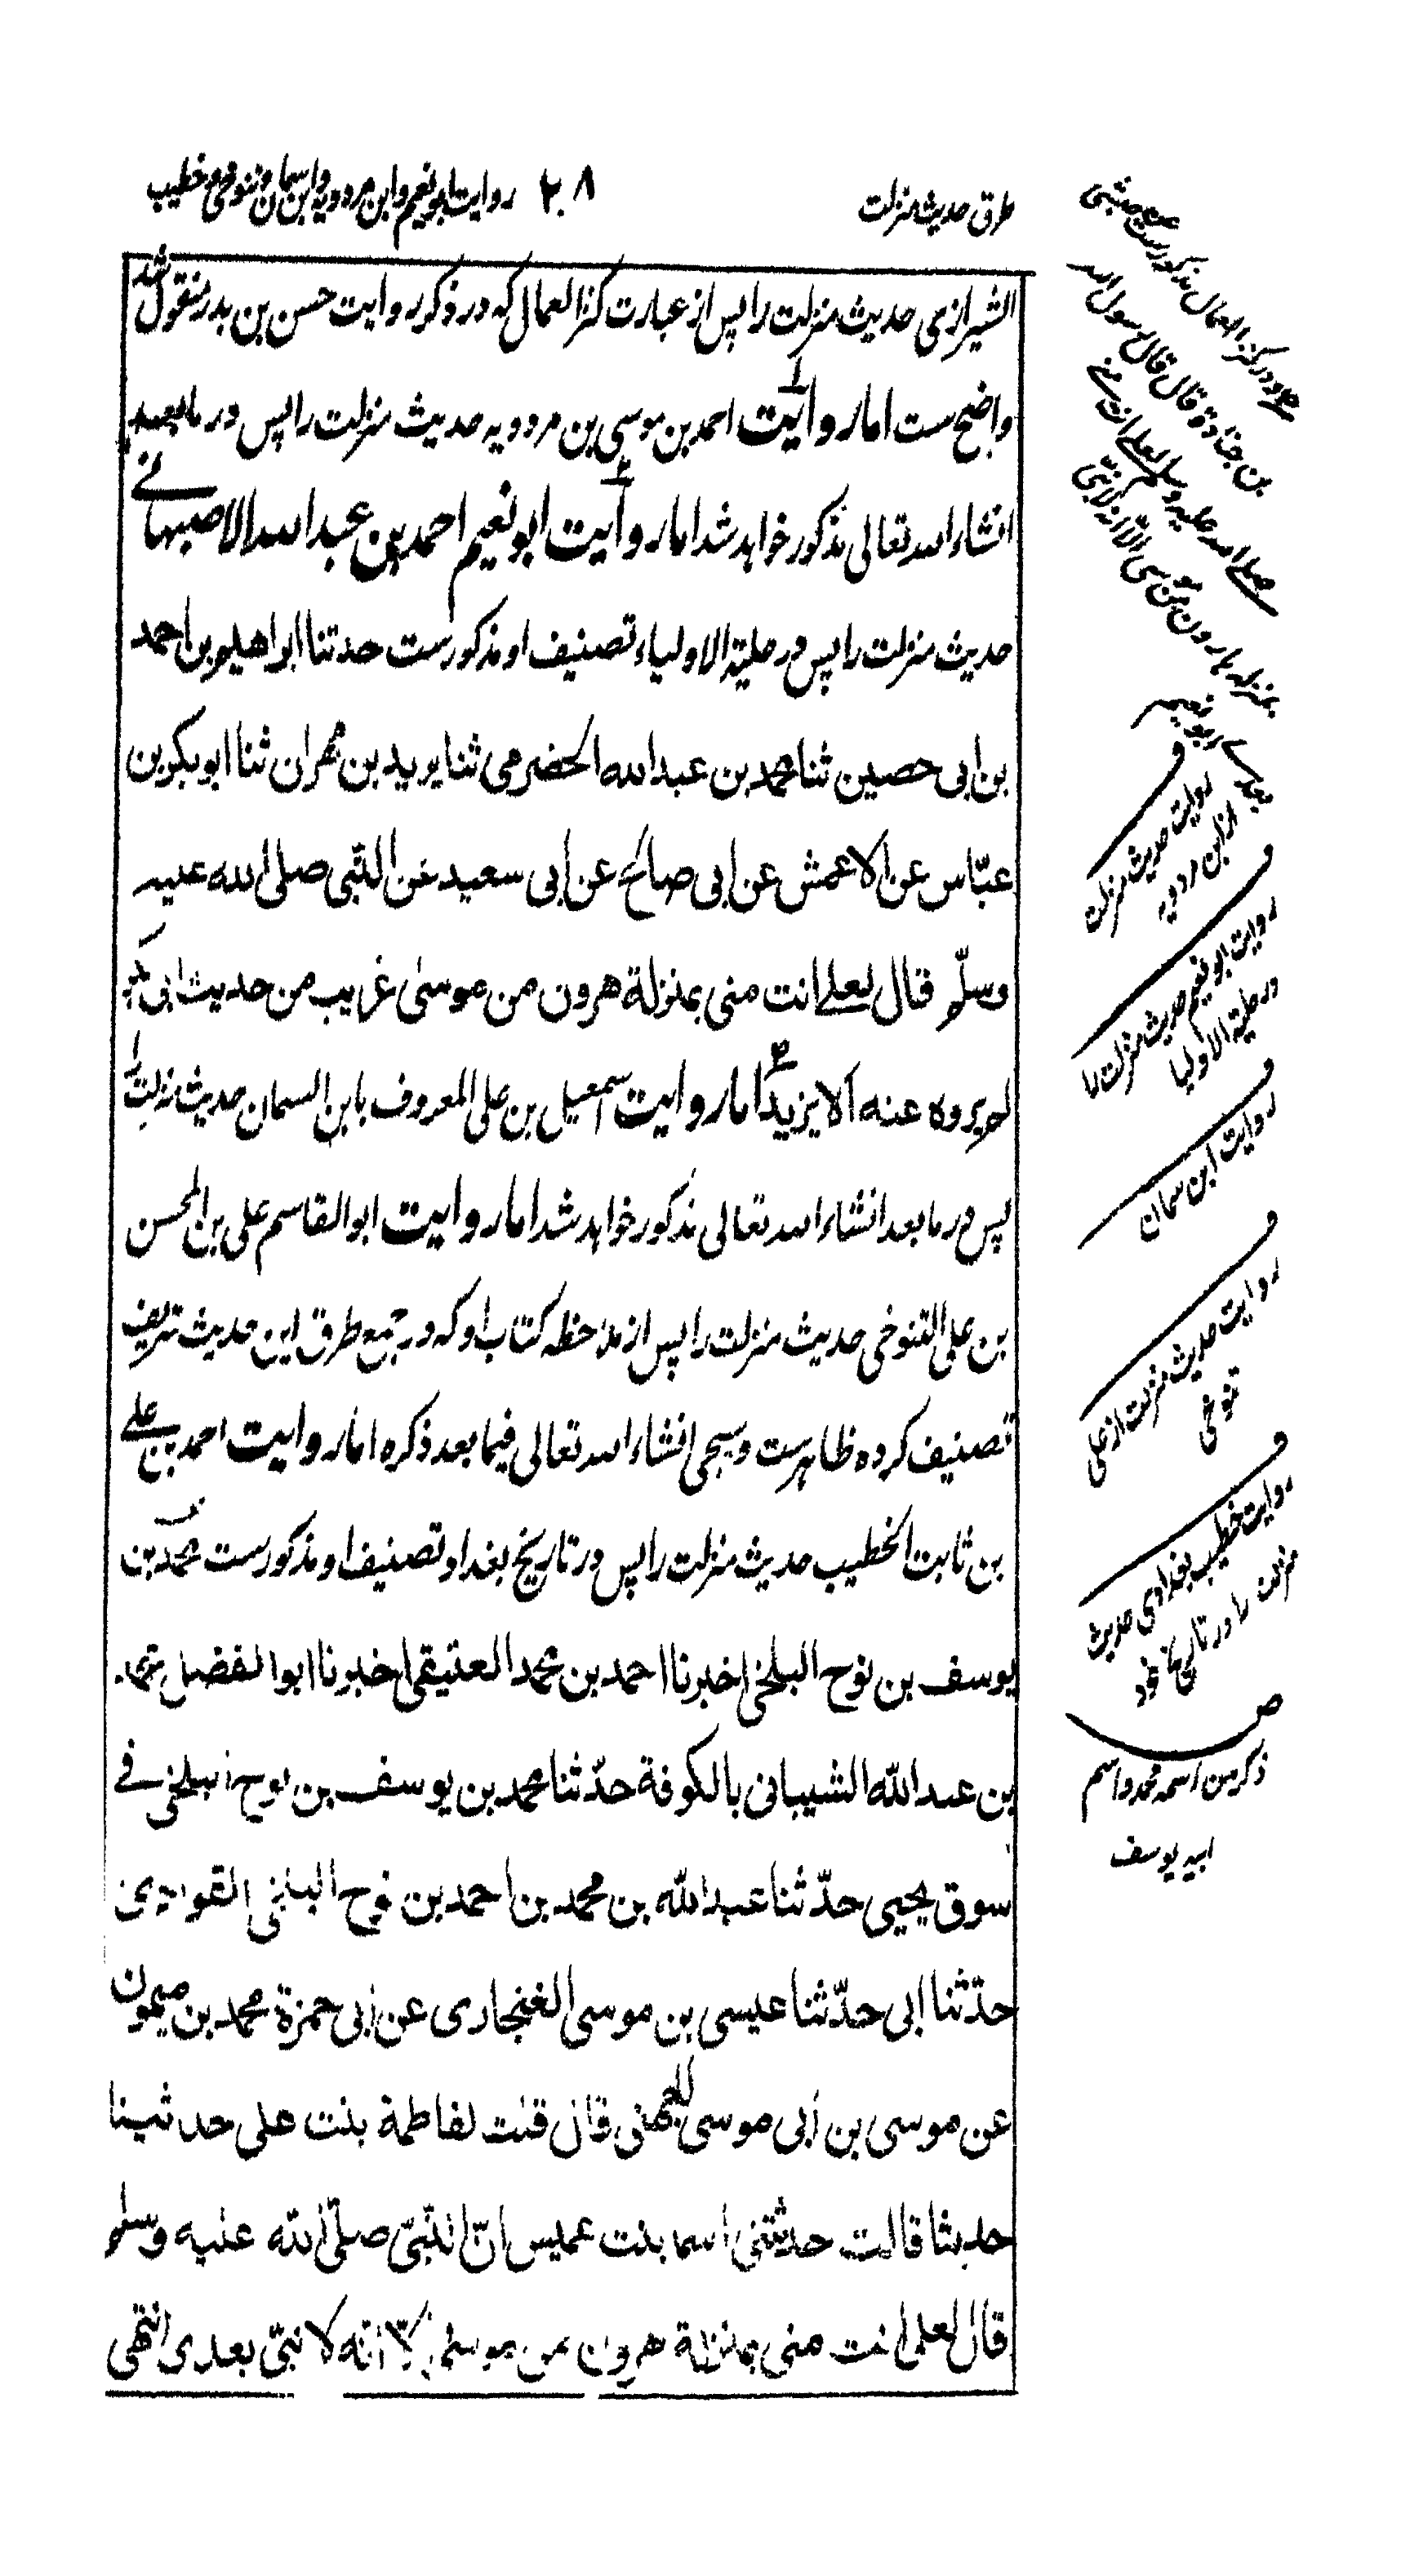 طرق حدیث منزلت
۲۰۸
روایت ابو نعیم و ابن مردویه و ابن سمان و تنوخی و خطیب
الشیرازی حدیث منزلت را پس از عبارت کنز العمال که در ذکر روایت حسن بن بدر منقول شد
واضح ست اما روایت احمد بن موسی بن مردویه حدیث منزلت را پس در ما بعد
انشاء الله تعالی مذکور خواهد شد اما روایت ابو نعیم احمد بن عبد الله الاصبهانے
حدیث منزلت را پس در حلیة الاولیاء تصنیف او مذکورست حدثنا ابراهیم بن احمد
بن ابی حصین ثنا محمد بن عبد الله الحضرمی ثنا یزید بن مهران ثنا ابو بکر بن
عبّاس عن الاعمش عن ابی صالح عن ابی سعید عن النّبی صلی الله علیه
وسلّم قال لعلے انت منی بمنزلة هرون من موسی غریب من حدیث ابی بکر
لم یروه عنه الا یزید اما روایت اسمعیل بن علی المعروف بابن السمان حدیث منزلت را
پس در ما بعد انشاء الله تعالی مذکور خواهد شد اما روایت ابو القاسم علی بن المحسن
بن علی التنوخی حدیث منزلت را پس از ملاحظه کتاب او که در جمع طرق این حدیث شریف
تصنیف کرده ظاهرست وسیجی انشاء الله تعالی فیما بعد ذکره اما روایت احمد بن علے
بن ثابت الخطیب حدیث منزلت را پس در تاریخ بغداد تصنیف او مذکورست محمد بن
یوسف بن نوح البلخی اخبرنا احمد بن محمد العتیقی اخبرنا ابو الفضل محمد
بن عبد الله الشیبانی بالکوفة حدّثنا محمد بن یوسف بن نوح البلخی فے
سوق یحیی حدّثنا عبد الله بن محمد بن احمد بن نوح البلخی القوادی
حدّثنا ابی حدّثنا عیسی بن موسی الغنجاری عن ابی حمزة محمد بن میمون
عن موسی بن ابی موسی الجهنی قال قلت لفاطمة بنت علی حدثینا
حدیثا قالت حدثتنی اسما بنت عمیس انّ النّبیّ صلّی الله علیه وسلم
قال لعلی انت منی بمنزلة هرون من موسی الّا انّه لا نبیّ بعدی انتهی
در کنز العمال مذکورست عن حبشی
بن جنادة قال قال رسول الله
صلے الله علیه وسلم لعلے انت منے
بمنزلة هارون من موسی الّا انه لا نبی
بعدے ابو نعیم
روایت حدیث منزلت
از ابن مردویه
روایت ابو نعیم حدیث منزلت را
در حلیة الاولیا
روایت ابن سمان
روایت حدیث منزلت از علی
تنوخی
روایت خطیب بغدادی حدیث
منزلت را در تاریخ خود
ذکر من اسمه محمد و اسم
ابیه یوسف